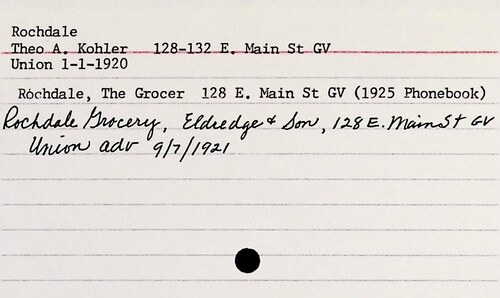 Rochdale
Theo A. Kohler 128-132 E. Main St GV
Union 1-1-1920
Rochdale, The Grocer 128 E. Main St GV (1925 Phonebook)
Rochdale Grocery, Eldredge & Son, 128 E. Main St GV
Union adv 9/7/1921